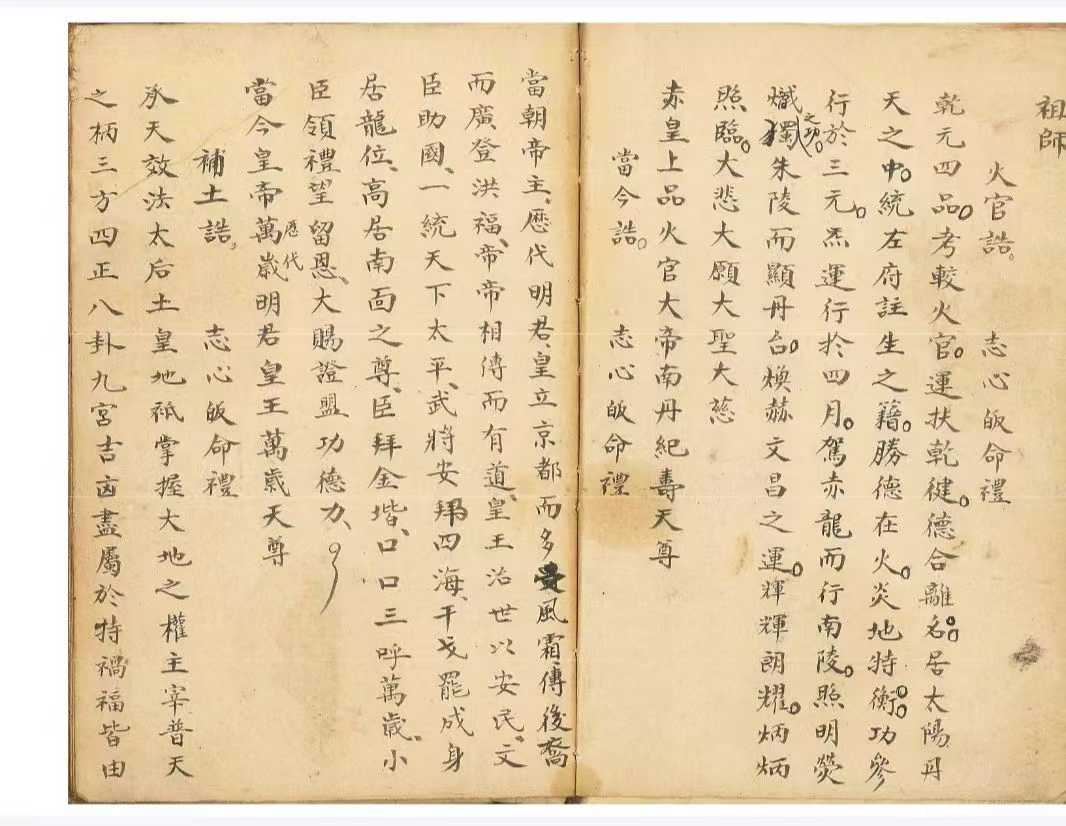 祖師
火官誥。 志心皈命禮
乾元四品。考較火官。運扶乾健。德合離名。居太陽丹
天之中。統左府註生之籍。勝德在火。炎地特衡。功參
行於三元。炁運行於四月。駕赤龍而行南陵。照明熒
熾獨之功。朱陵而顯丹台。煥赫文昌之運。輝輝朗耀。炳炳
照臨。大悲大願大聖大慈
赤皇上品火官大帝南丹紀壽天尊
當今誥。 志心皈命禮
當朝帝主、歷代明君、皇立京都而多受風霜傳後裔
而廣登洪福、帝、帝相傳而有道、皇王治世以安民、文
臣助國、一統天下太平、武將安邦四海、干戈罷成身
居龍位、高居南面之尊、臣拜金堦、口口三呼萬歲、小
臣領禮望留恩、大賜證盟功德力、
當今皇帝萬歲歷代明君皇王萬歲天尊
補土誥。 志心皈命禮
承天效法太后土皇地祇掌握大地之權主宰普天
之柄三方四正八卦九宮吉凶盡屬於特禍福皆由